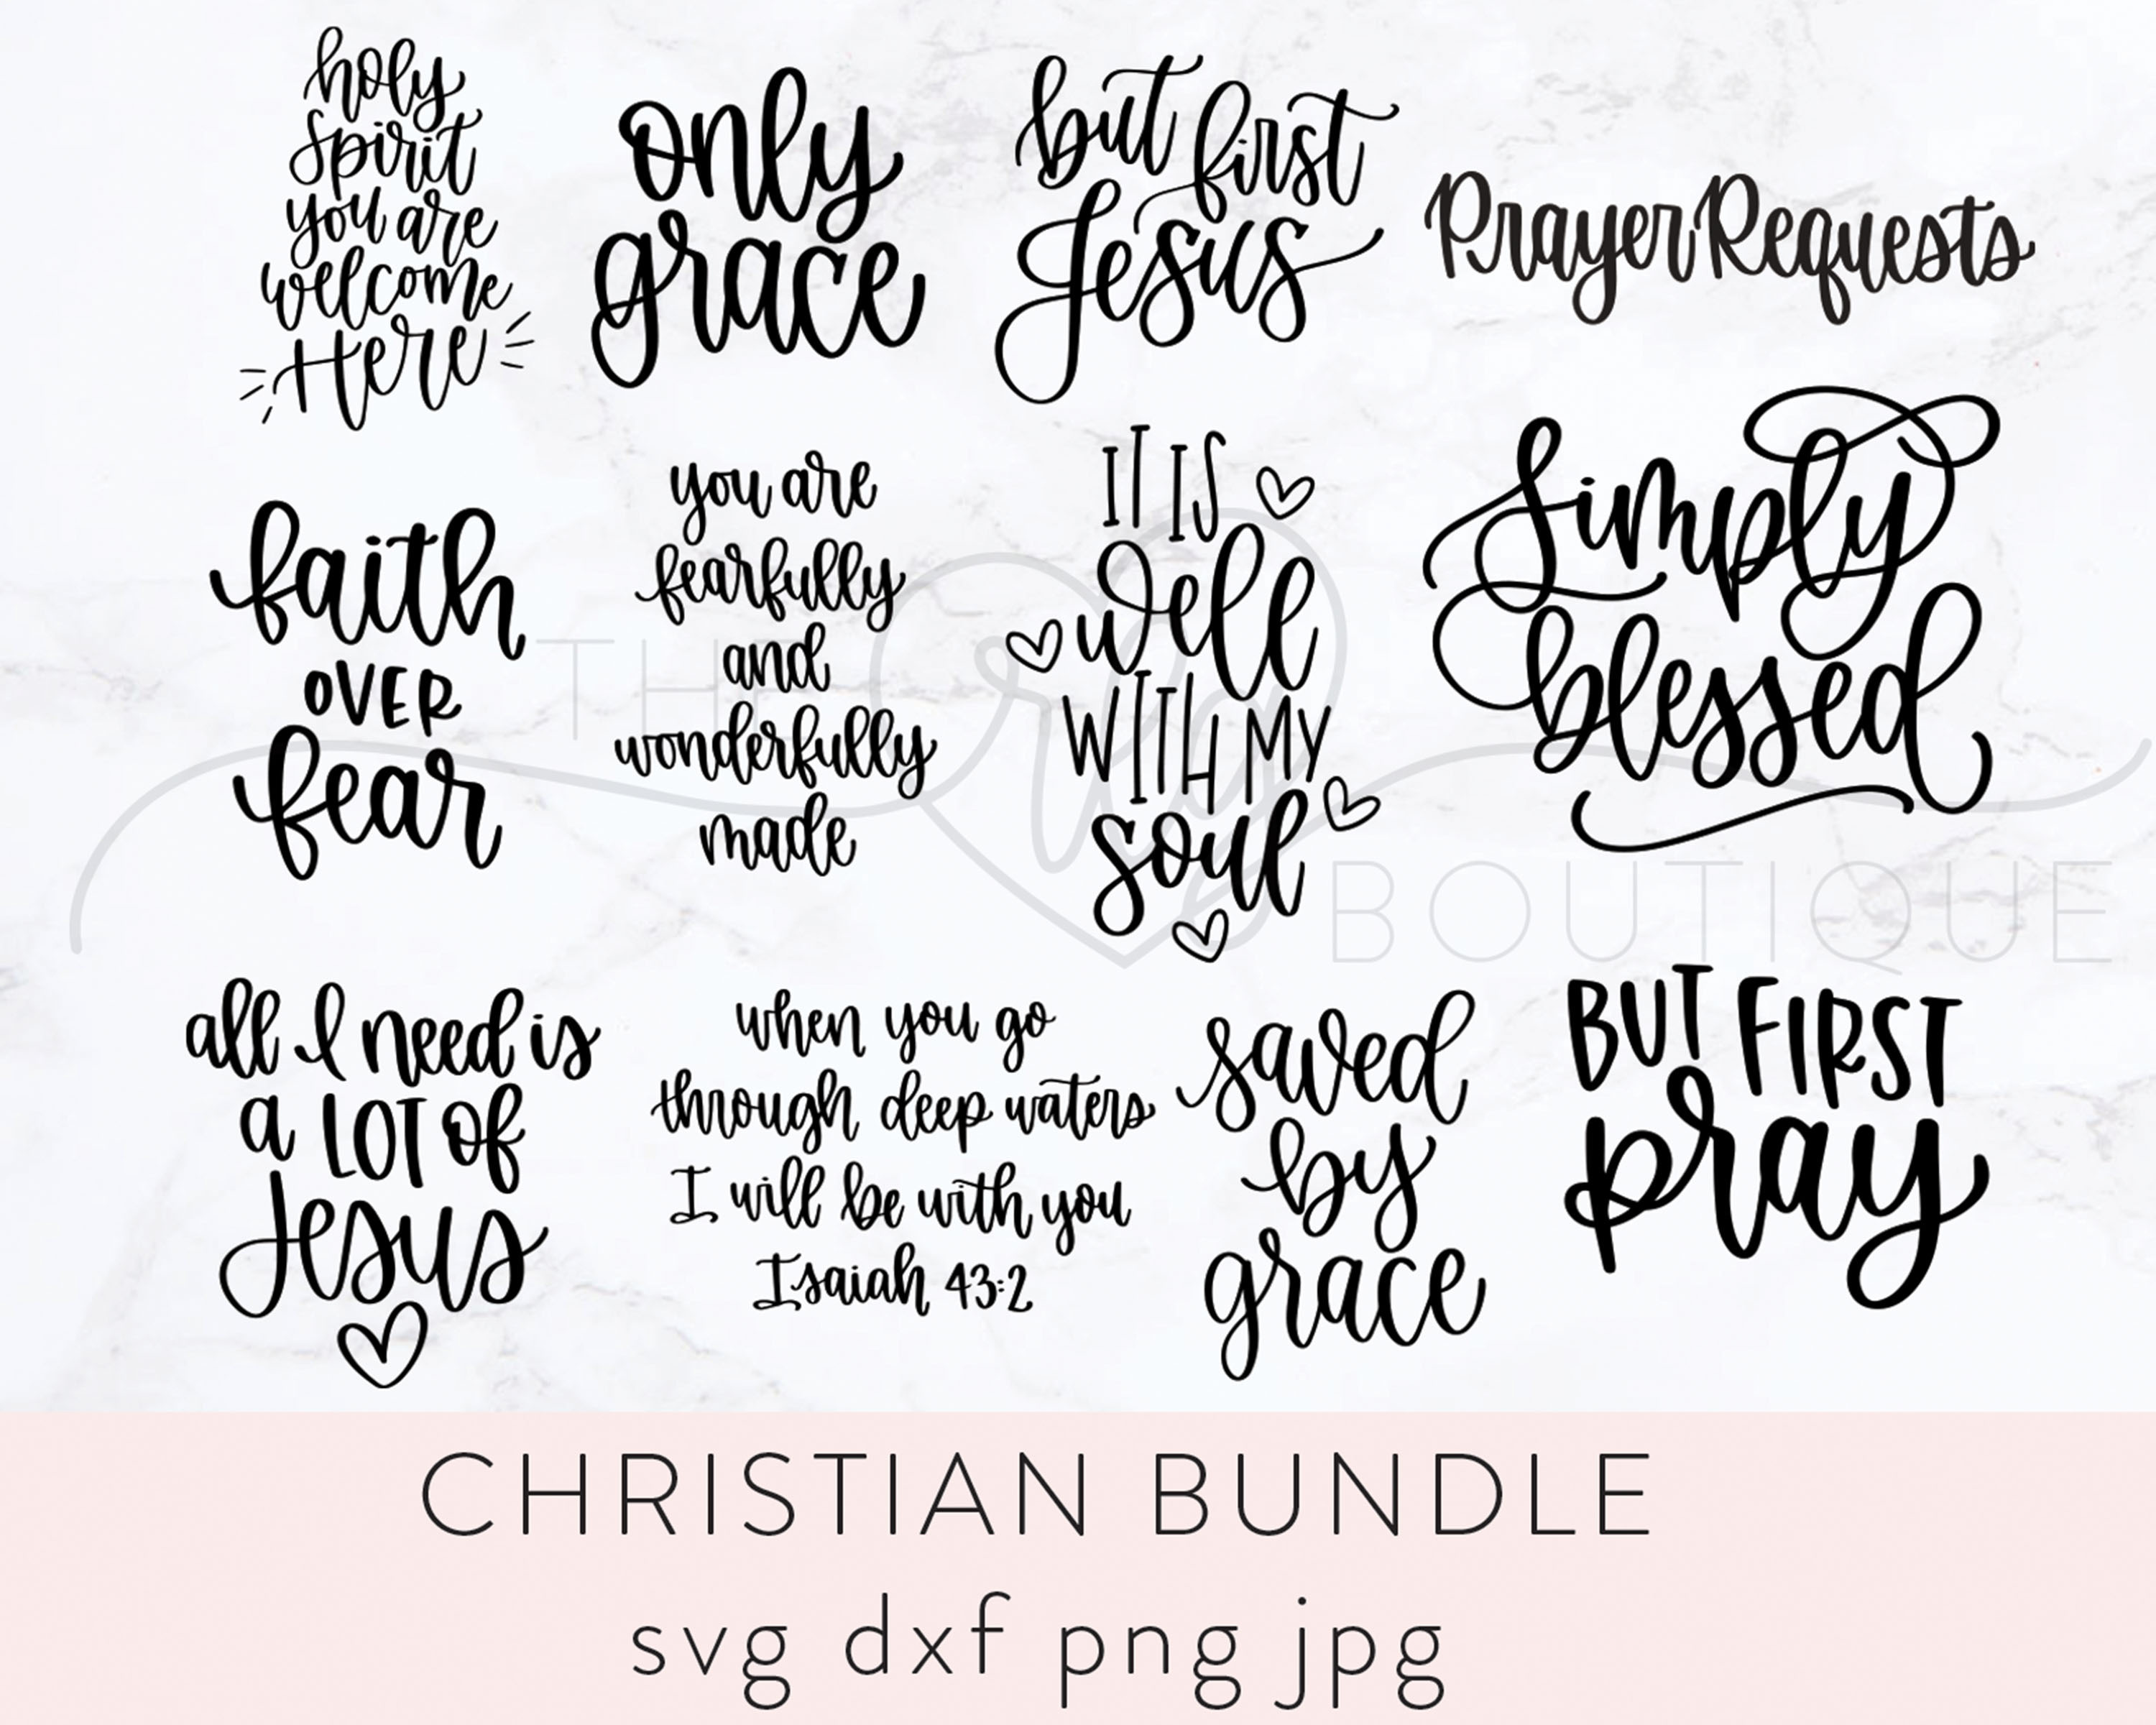 holy
spirit
you are
welcome
Here
only
grace
but first
Jesus
Prayer Requests
faith
OVER
fear
you are
fearfully
and
wonderfully
made
IT IS
well
WITH MY
soul
Simply
blessed
all I need is
a LOT of
Jesus
when you go
through deep waters
I will be with you
Isaiah 43:2
saved
by
grace
BUT FIRST
pray
THE
BOUTIQUE
CHRISTIAN BUNDLE
svg dxf png jpg